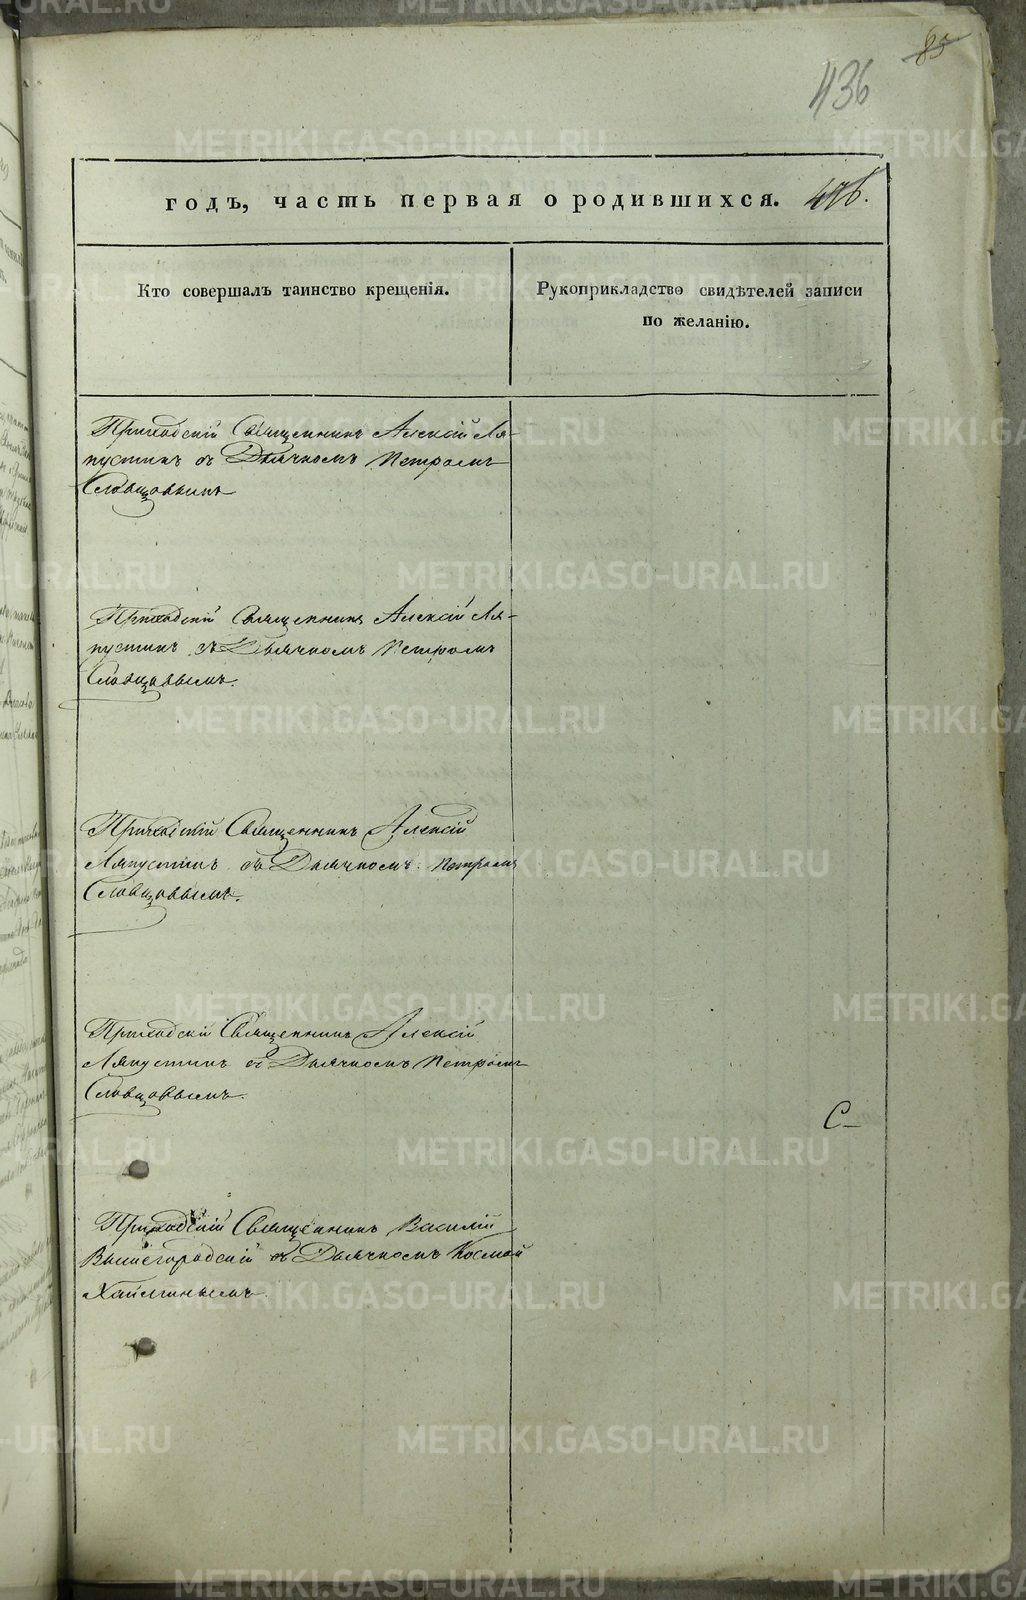 85
436
годъ, часть первая о родившихся. 476.
Кто совершалъ таинство крещенія.
Рукоприкладство свидѣтелей записи
по желанію.
Приходскій Священникъ Алексій Ля-
пустинъ съ Дьячкомъ Петромъ
Словцовымъ
Приходскій Священникъ Алексій Ля-
пустинъ съ Дьячкомъ Петромъ
Словцовымъ.
Приходскій Священникъ Алексій
Ляпустинъ съ Дьячкомъ Петромъ
Словцовымъ.
Приходскій Священникъ Алексій
Ляпустинъ съ Дьячкомъ Петромъ
Словцовымъ.
С
Приходскій Священникъ Василій
Вышегородскій съ Дьячкомъ Космой
METRIKI.GASO-URAL.RU